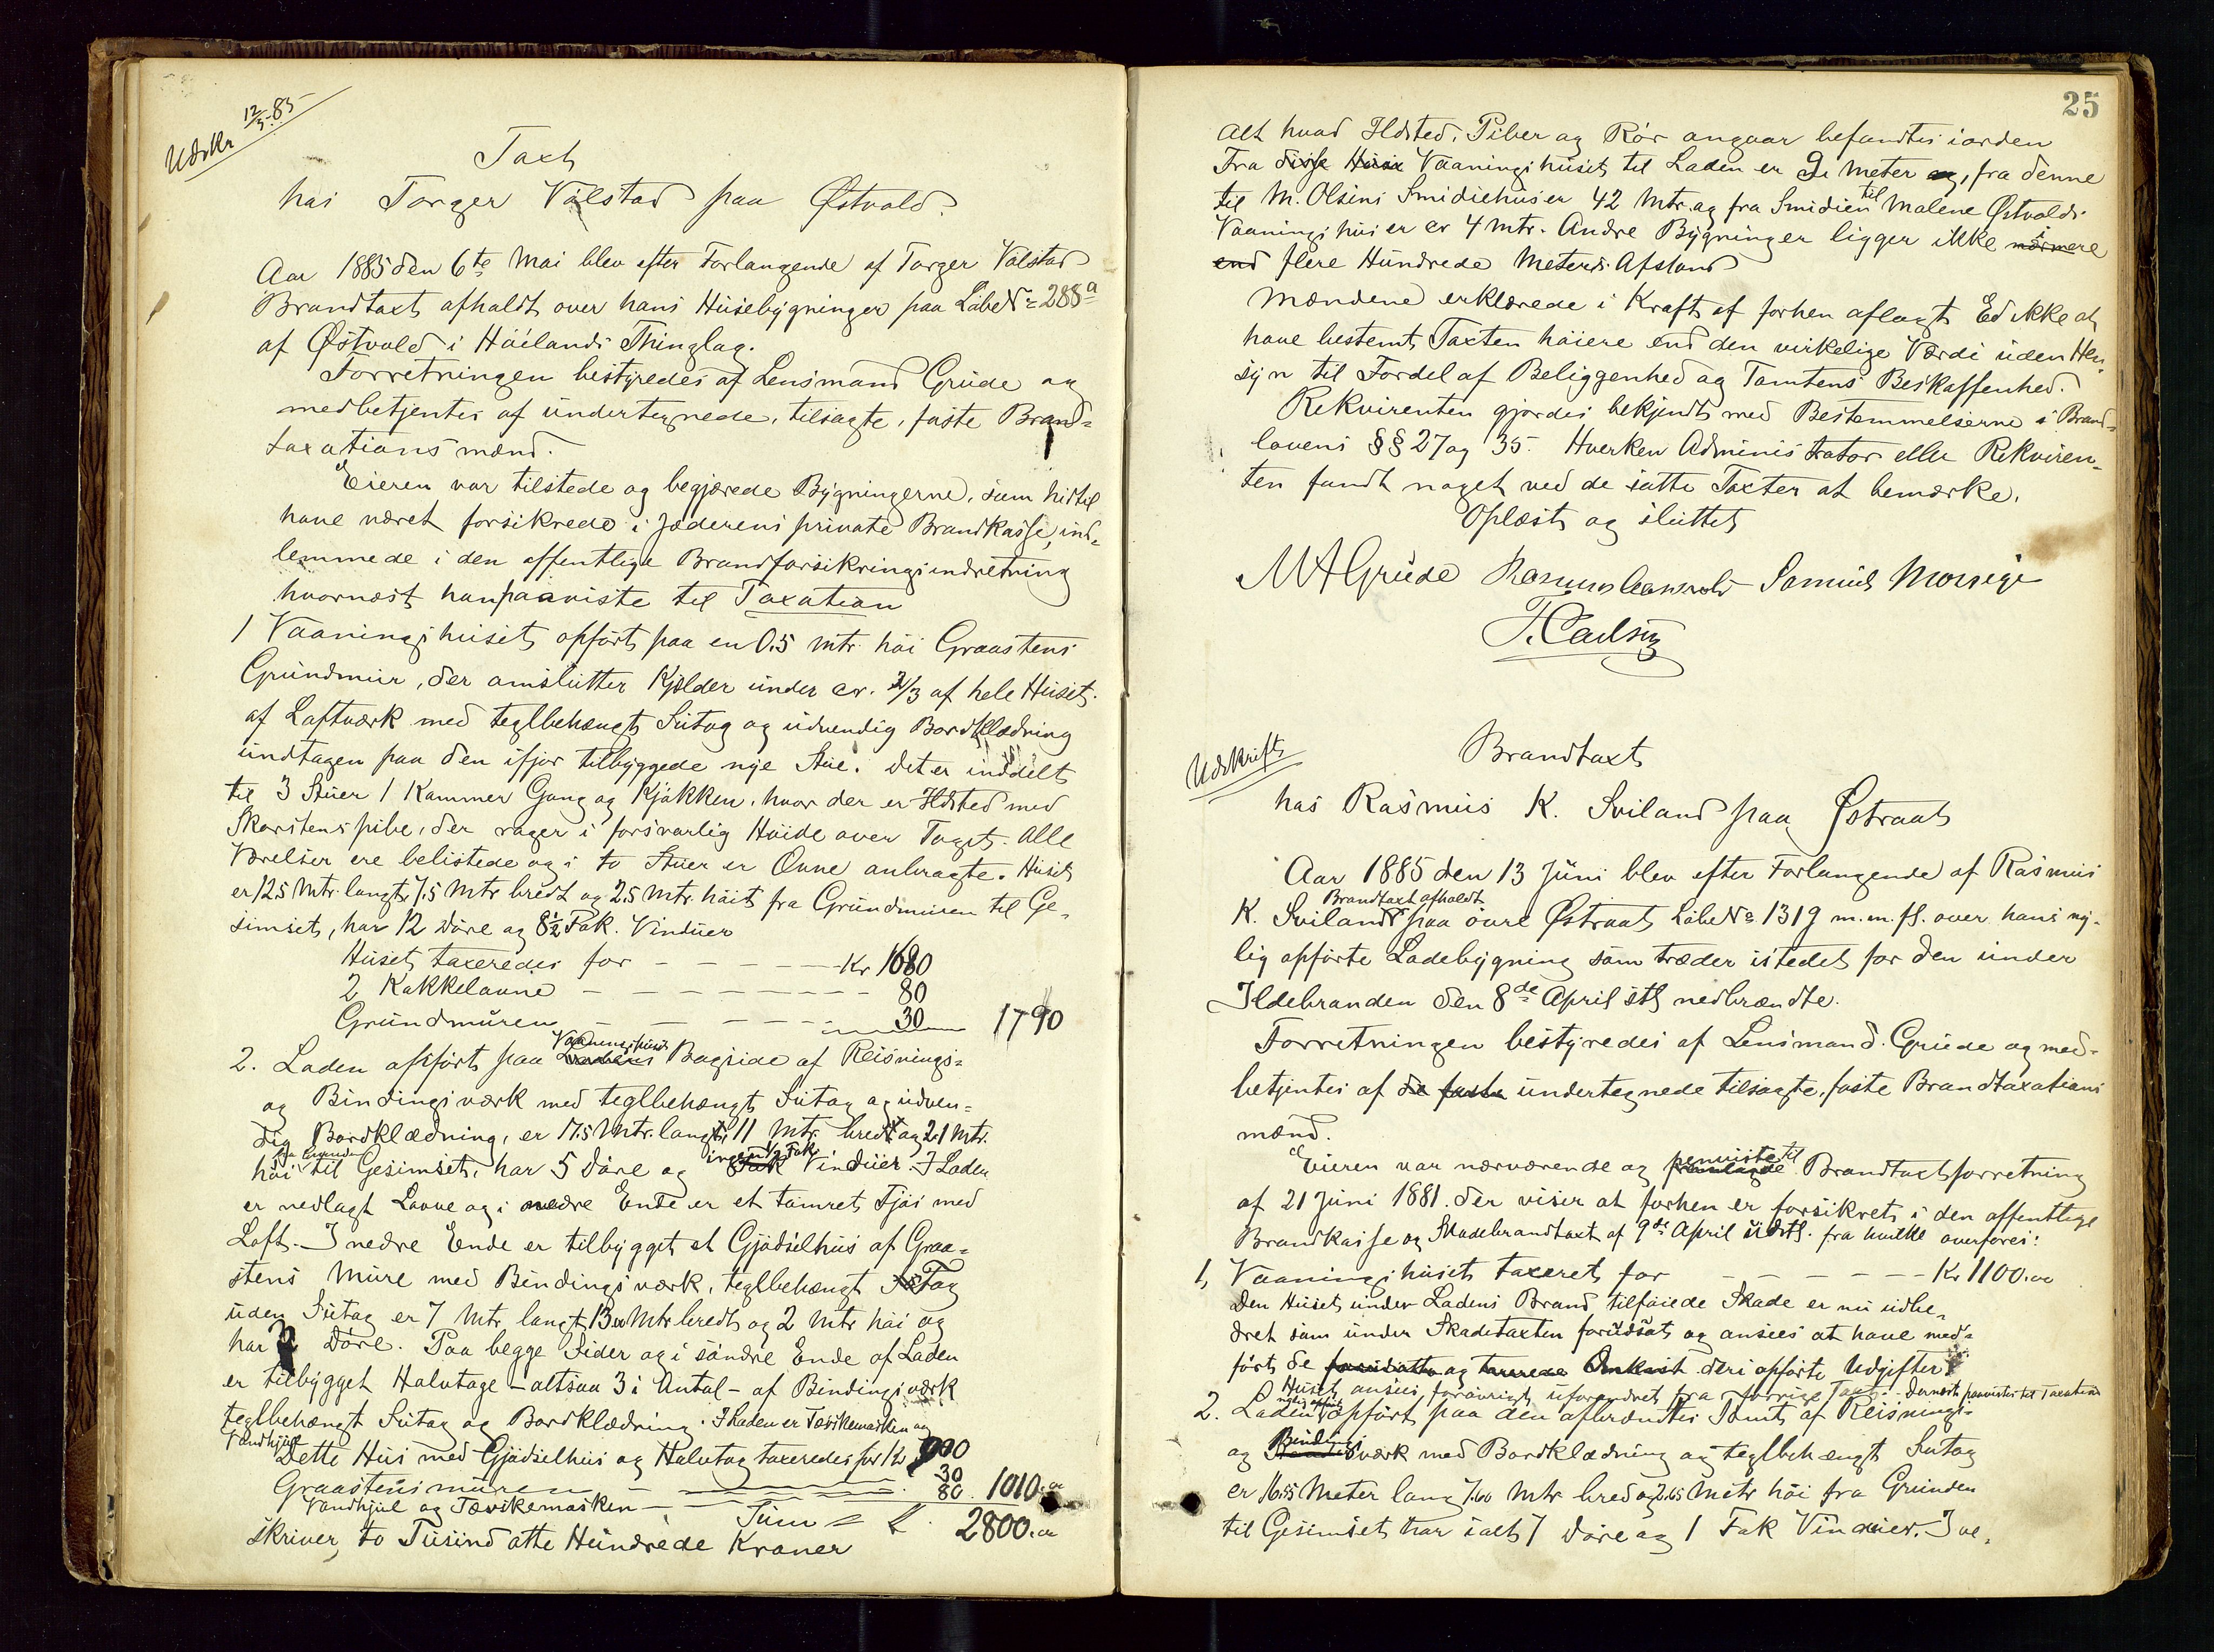 Udskr 12/5 85
Taxt
hos Torger Välstad paa Østvold.
Aar 1885 den 6te Mai blev efter Forlangende af Torger Välstad
Brandtaxt afholdt over hans Husebygninger paa LöbeNo 288a
af Østvold i Höilands Thinglag.
Forretningen bestyredes af Lensmand Grude og
medbetjentes af undertegnede, tilsagte, faste Brand-
taxationsmænd.
Eieren var tilstede og begjærede Bygningerne, som hidtil
have været forsikrede i Jæderens private Brandkasse, ind-
lemmede i den offentlige Brandforsikringsindretning
hvornæst han paaviste til Taxation
1 Vaaningshuset, opfört paa en 0.5 mtr. höi Graastens
Grundmur, der omslutter Kjelder under cr. 2/3 af hele Huset.
af Laftværk med teglbehængt Sutag og udvendig Bordklædning
undtagen paa den ifjor tilbyggede nye Stue. Det er inddelt
til 3 Stuer 1 Kammer Gang og Kjökken, hvor der er Ildsted med
Skorstenspibe, der rager i forsvarlig Höide over Taget. Alle
Værelser ere belistede og i to Stuer er Ovne anbragte. Huset
er 12.5 Mtr. langt, 7.5 Mtr bredt og 2.5 Mtr. höit fra Grundmuren til Ge-
simset, har 12 Döre og 8½ Fak. Vinduer
Huset taxeredes for - - - - - Kr 1680
2 Kakkelovne - - - - - - - 80
Grundmuren - - - - - 30 1790
2. Laden opfört paa Vaaningshusets Bagside af Reisnings-
og Bindingsværk med teglbehængt Sutag og udven-
dig Bordklædning, er 17.5 Mtr. langt, 11 Mtr. bredt og 2.1 Mtr.
höi fra Grunden til Gesimset, har 5 Döre og ingen ½ Fak Vinduer. I Laden
er nedlagt Lovve og i nedre Ende er et tömret Fjös med
Loft. I nedre Ende er tilbygget et Gjödselhus af Graa-
stens Mure med Bindingsværk, teglbehængt Tag
uden Sutag er 7 Mtr. langt, 13 Mtr bredt og 2 Mtr höi og
har 2 Döre. Paa begge Sider og i söndre Ende af Laden
er tilbygget Halvtage - altsaa 3 i Antal - af Bindingsværk
teglbehængt Sutag og Bordklædning. I Laden er Tærskemaskin og
Vandhjul
Dette Hus med Gjödselhus og Halvtag taxeredes for Kr 900
Graastensmuren - 30
Vandhjul og Tærskemaskin - 80. 1010.00
Sum = 2800.00
skriver, to Tusind otte Hundrede Kroner
25
Alt hvad Ildsted, Piber og Rör angaar befandtes iorden
Fra disse Huse Vaaningshuset til Laden er 9 Meter og, fra denne
til M. Olsens Smidiehus er 42 Mtr. og fra Smidien til Malene Østvolds
Vaaningshus er cr 4 Mtr. Andre Bygninger ligger ikke nærmere i
end flere Hundrede Meters Afstand
Mændene erklærede i Kraft af forhen aflagt Ed ikke at
have bestemt Taxten höiere end den virkelige Værdi uden Hen-
syn til Fordel af Beliggenhed og Tomtens Beskaffenhed.
Rekvirenten gjordes bekjendt med Bestemmelserne i Brand-
lovens §§ 27 og 35. Hverken Administrator eller Rekviren-
ten fandt noget ved de satte Taxter at bemærke.
Oplæst og sluttet
MAGrude Samuel
T. Carlsen
Udskrift
Brandtaxt
hos Rasmus K. Sviland paa Østraat
Aar 1885 den 13 Juni blev efter Forlangende af Rasmus
K. Sviland Brandtaxt afholdt paa övre Østraat LöbeNo 1319 m.m. fl. over hans ny-
lig opförte Ladebygning som træder istedet for den under
Ildebranden den 8de April sts nedbrændte.
Forretningen bestyredes af Lensmand Grude og med-
betjentes af de faste undertegnede tilsagte, faste Brandtaxations
mænd.
Eieren var nærværende og fremlagde penviste til Brandtaxtforretning
af 21 Juni 1881. der viser at forhen er forsikret i den offentlige
Brandkasse og Skadebrandtaxt af 9de April fra hvilke overföres:
1, Vaaningshuset taxeret for - - - - - Kr 1100.00
Den Huset under Ladens Brand tilföiede Skade er nu udbe-
dret som under Skadetaxten forudsat og ansees at have med-
fört de og deri opförte Udgifter
Huset ansees forövrigt uforandret fra forrige Taxt. Dernæst paavistes til Taxation
2. Laden nylig opfört opfört paa den afbrændtes Tomt af Reisnings-
og Bindingsværk med Bordklædning og teglbehængt Sutag
er 16.55 Meter lang 7.60 Mtr. bred og 2.65 Mtr höi fra Grunden
til Gesimset har ialt 7 Döre og 1 Fak Vinduer. I ve-